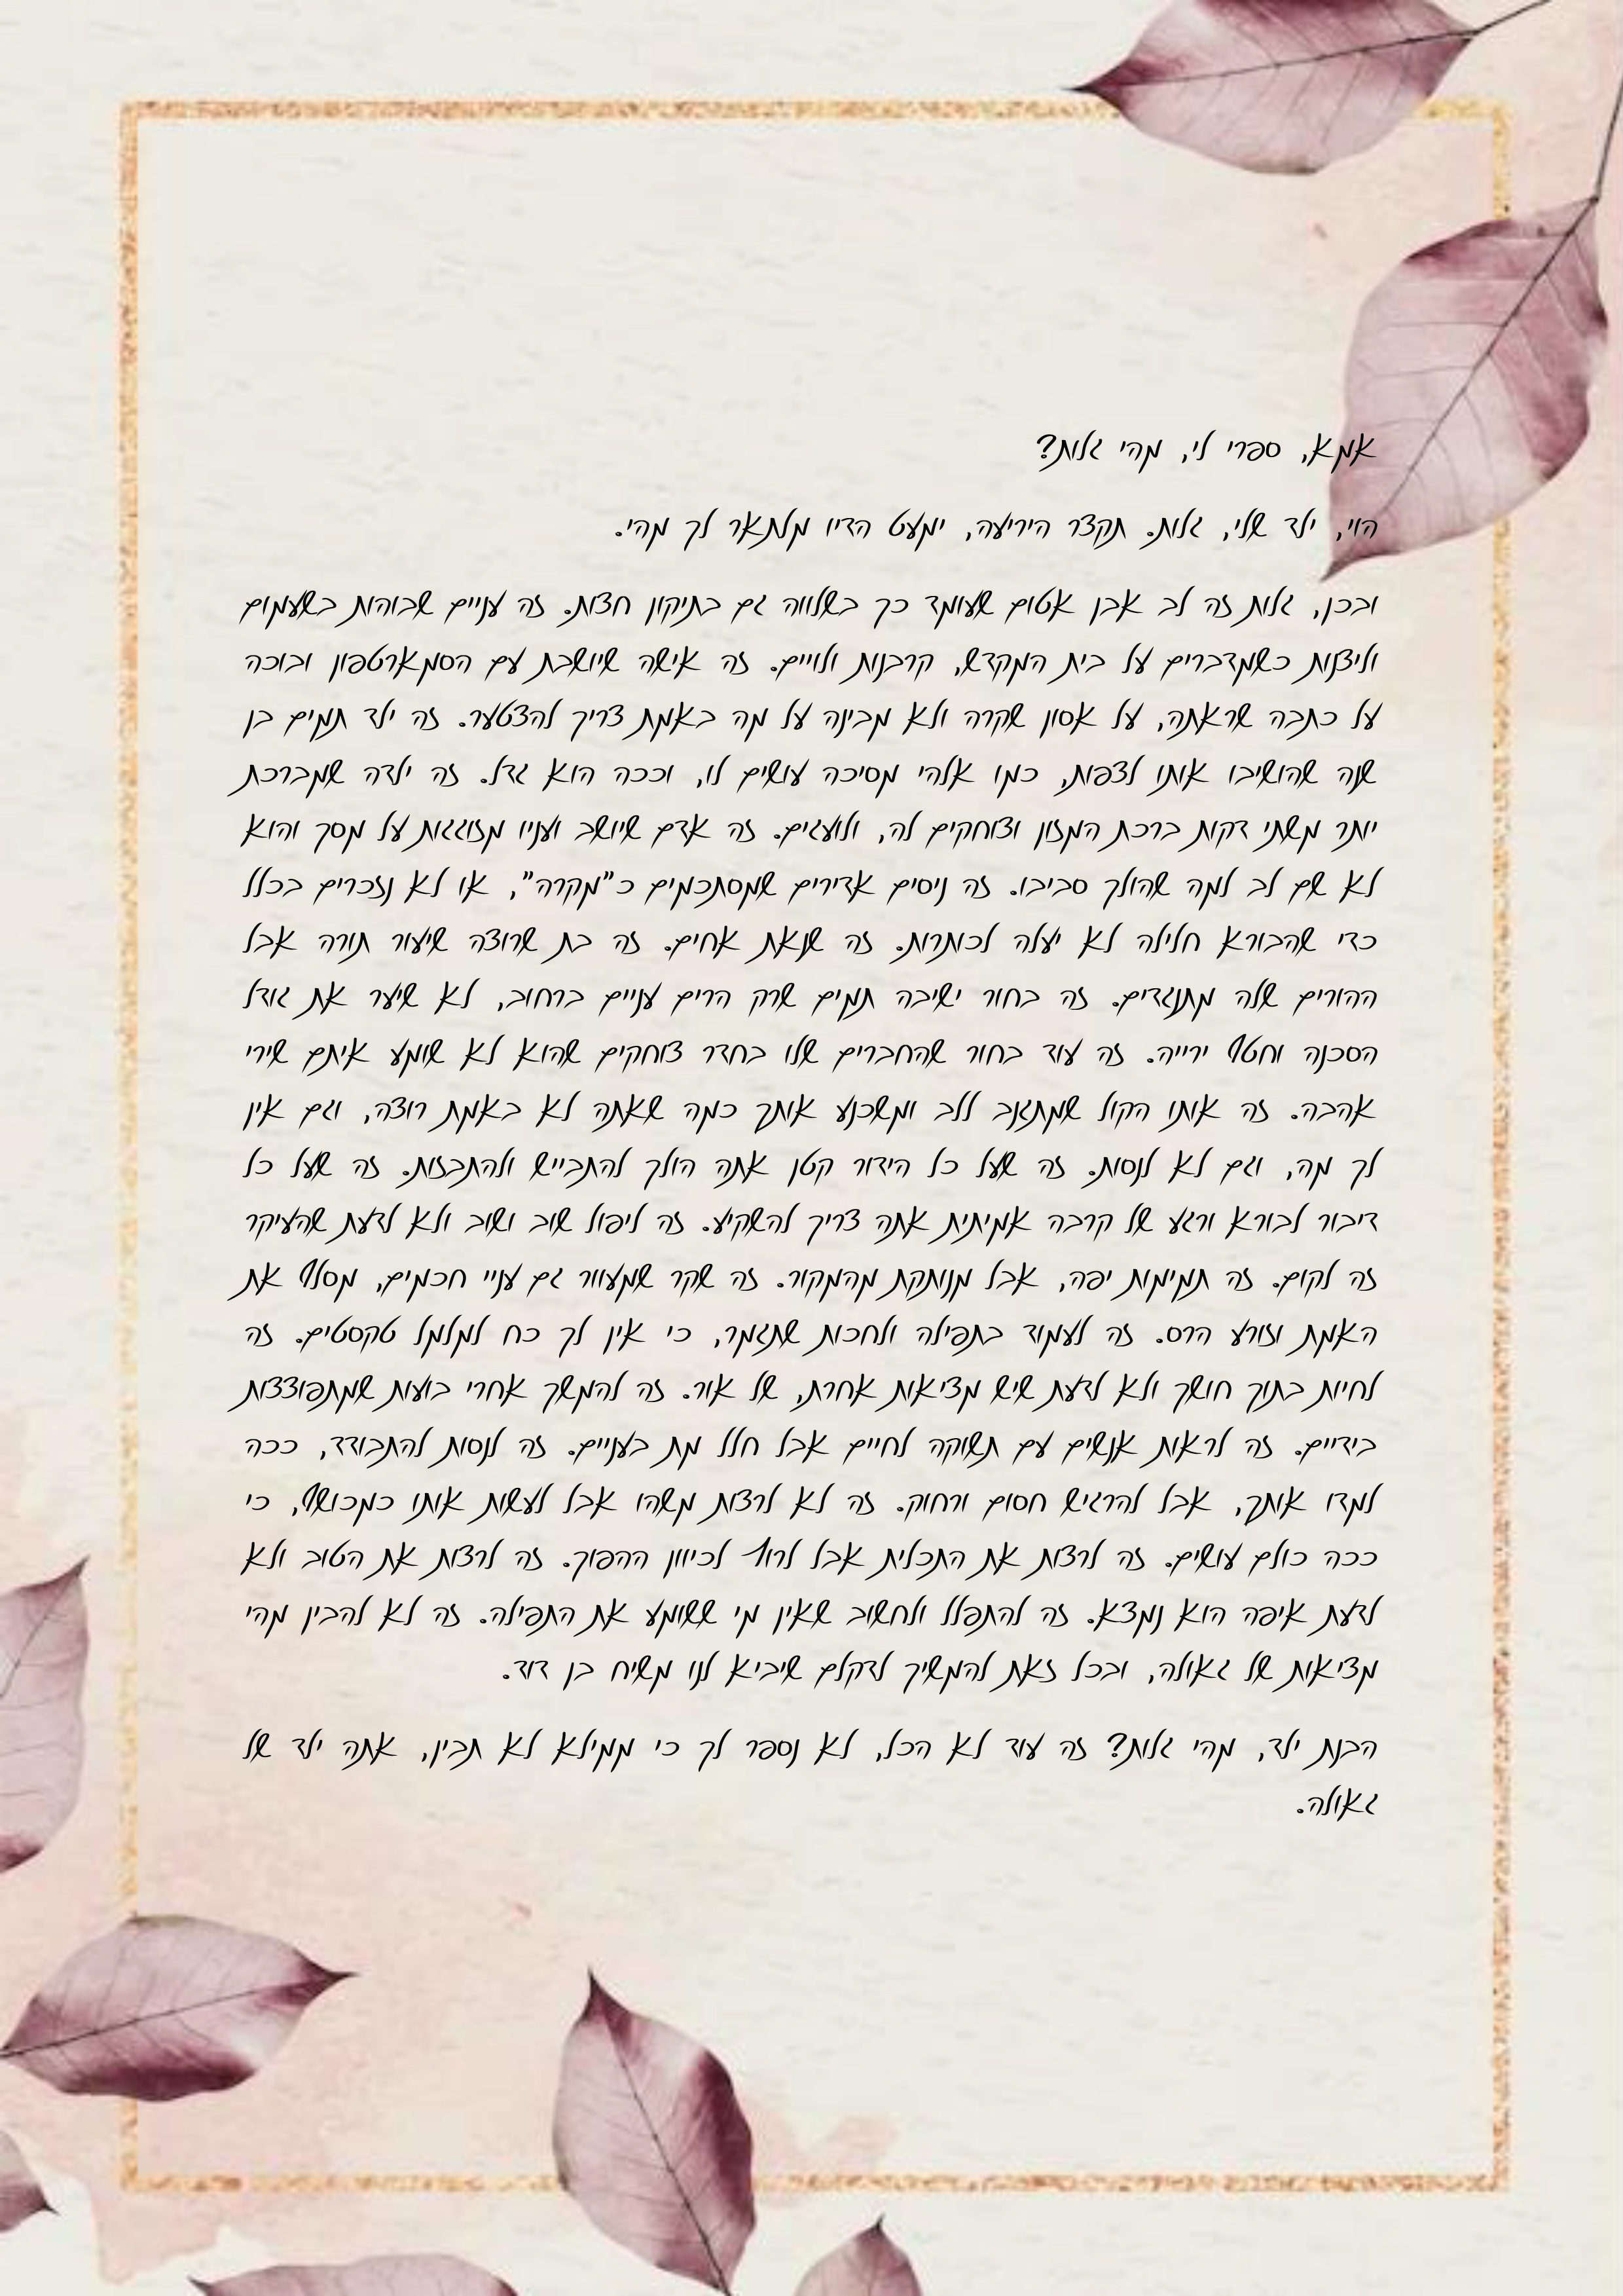 אמא, ספרי לי, מהי גלות?
הוי, ילד שלי, גלות. תקצר היריעה, ימעט הדיו מלתאר לך מהי.
ובכן, גלות זה לב אבן אטום שעומד כך בשלווה גם בתיקון חצות. זה עניים שבוהות בשעמום
וליצנות כשמדברים על בית המקדש, קרבנות ולויים. זה אישה שיושבת עם הסמארטפון ובוכה
על כתבה שראתה, על אסון שקרה ולא מבינה על מה באמת צריך להצטער. זה ילד תמים בן
שנה שהושיבו אותו לצפות, כמו אלהי מסיכה עושים לו, וככה הוא גדל. זה ילדה שמברכת
יותר משתי דקות ברכת המזון וצוחקים לה, ולועגים. זה אדם שיושב ועניו מזוגגות על מסך והוא
לא שם לב למה שהולך סביבו. זה ניסים אדירים שמסתכמים כ"מקרה", או לא נזכרים בכלל
כדי שהבורא חלילה לא יעלה לכותרות. זה שנאת אחים. זה בת שרוצה שיעור תורה אבל
ההורים שלה מתנגדים. זה בחור ישיבה תמים שרק הרים עניים ברחוב, לא שיער את גודל
הסכנה וחטף ירייה. זה עוד בחור שהחברים שלו בחדר צוחקים שהוא לא שומע איתם שירי
אהבה. זה אותו הקול שמתגנב ללב ומשכנע אותך כמה שאתה לא באמת רוצה, וגם אין
לך מה, וגם לא לנסות. זה שעל כל הידור קטן אתה הולך להתבייש ולהתבזות. זה שעל כל
דיבור לבורא ורגע של קרבה אמיתית אתה צריך להשקיע. זה ליפול שוב ושוב ולא לדעת שהעיקר
זה לקום. זה תמימות יפה, אבל מנותקת מהמקור. זה שקר שמעוור גם עניי חכמים, מסלף את
האמת וזורע הרס. זה לעמוד בתפילה ולחכות שתגמר, כי אין לך כח למלמל טקסטים. זה
לחיות בתוך חושך ולא לדעת שיש מציאות אחרת, של אור. זה להמשך אחרי בועות שמתפוצצות
בידיים. זה לראות אנשים עם תשוקה לחיים אבל חלל מת בעניים. זה לנסות להתבודד, ככה
למדו אותך, אבל להרגיש חסום ורחוק. זה לא לרצות משהו אבל לעשות אותו כמכושף, כי
ככה כולם עושים. זה לרצות את התכלית אבל לרוץ לכיוון ההפוך. זה לרצות את הטוב ולא
לדעת איפה הוא נמצא. זה להתפלל ולחשוב שאין מי ששומע את התפילה. זה לא להבין מהי
מציאות של גאולה, ובכל זאת להמשיך לדקלם שיביא לנו משיח בן דוד.
הבנת ילד, מהי גלות? זה עוד לא הכל, לא נספר לך כי ממילא לא תבין, אתה ילד של
גאולה.